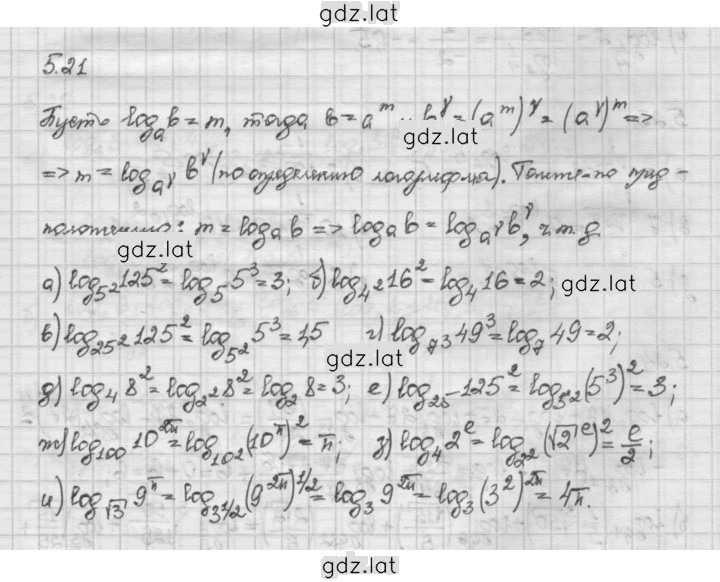 gdz.lat
5.21
Пусть log_a b = m, тогда b = a^m .. b^γ = (a^m)^γ = (a^γ)^m =>
gdz.lat
=> m = log_{a^γ} b^γ (по определению логарифма). Так как по пред-
положению: m = log_a b => log_a b = log_{a^γ} b^γ, ч.т.д
gdz.lat
а) log_{5^2} 125^2 = log_5 5^3 = 3; б) log_{4^2} 16^2 = log_4 16 = 2; gdz.lat
в) log_{25^2} 125^2 = log_{5^2} 5^3 = 1,5 г) log_{7^3} 49^3 = log_7 49 = 2;
gdz.lat
д) log_4 8^2 = log_{2^2} 8^2 = log_2 8 = 3; е) log_{25} 125^2 = log_{5^2} (5^3)^2 = 3;
ж) log_{100} 10^{2π} = log_{10^2} (10^π)^2 = π; з) log_4 2^e = log_{2^2} (√2^e)^2 = e/2;
и) log_{√3} 9^π = log_{3^{1/2}} (9^{2π})^{1/2} = log_3 9^{2π} = log_3 (3^2)^{2π} = 4π.
gdz.lat